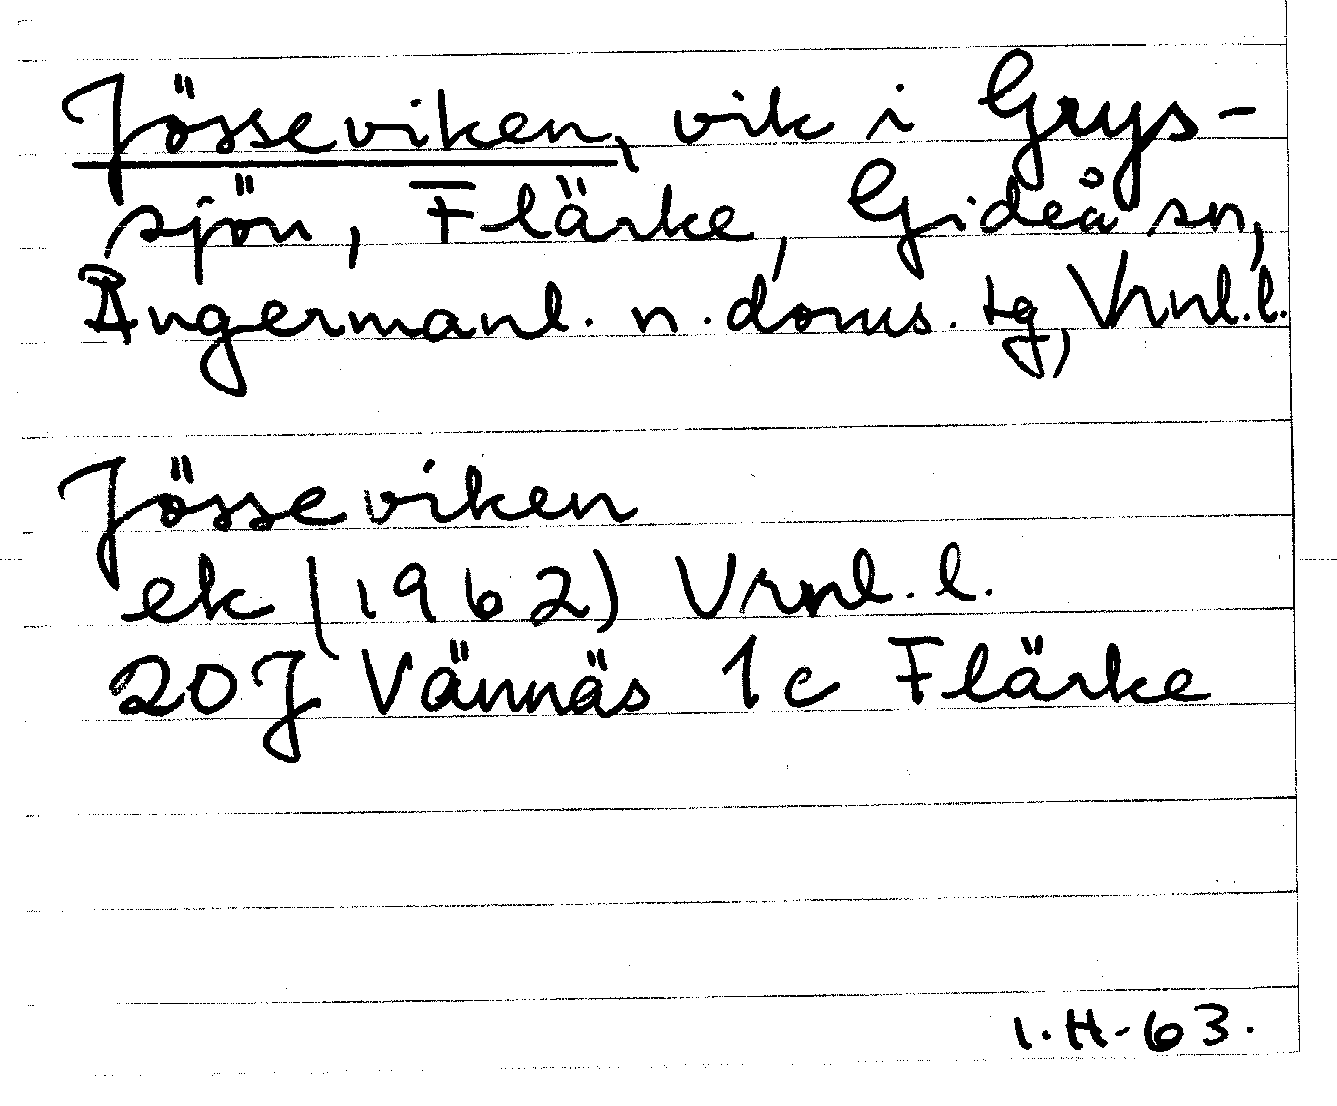 Jösseviken, vik i Grys-
sjön, Flärke, Gideå sn,
Ångermanl. n. doms. tg, Vrnl.l.
Jösseviken
ek (1962) Vrnl. l.
20J Vännäs 1c Flärke
I.H-63.